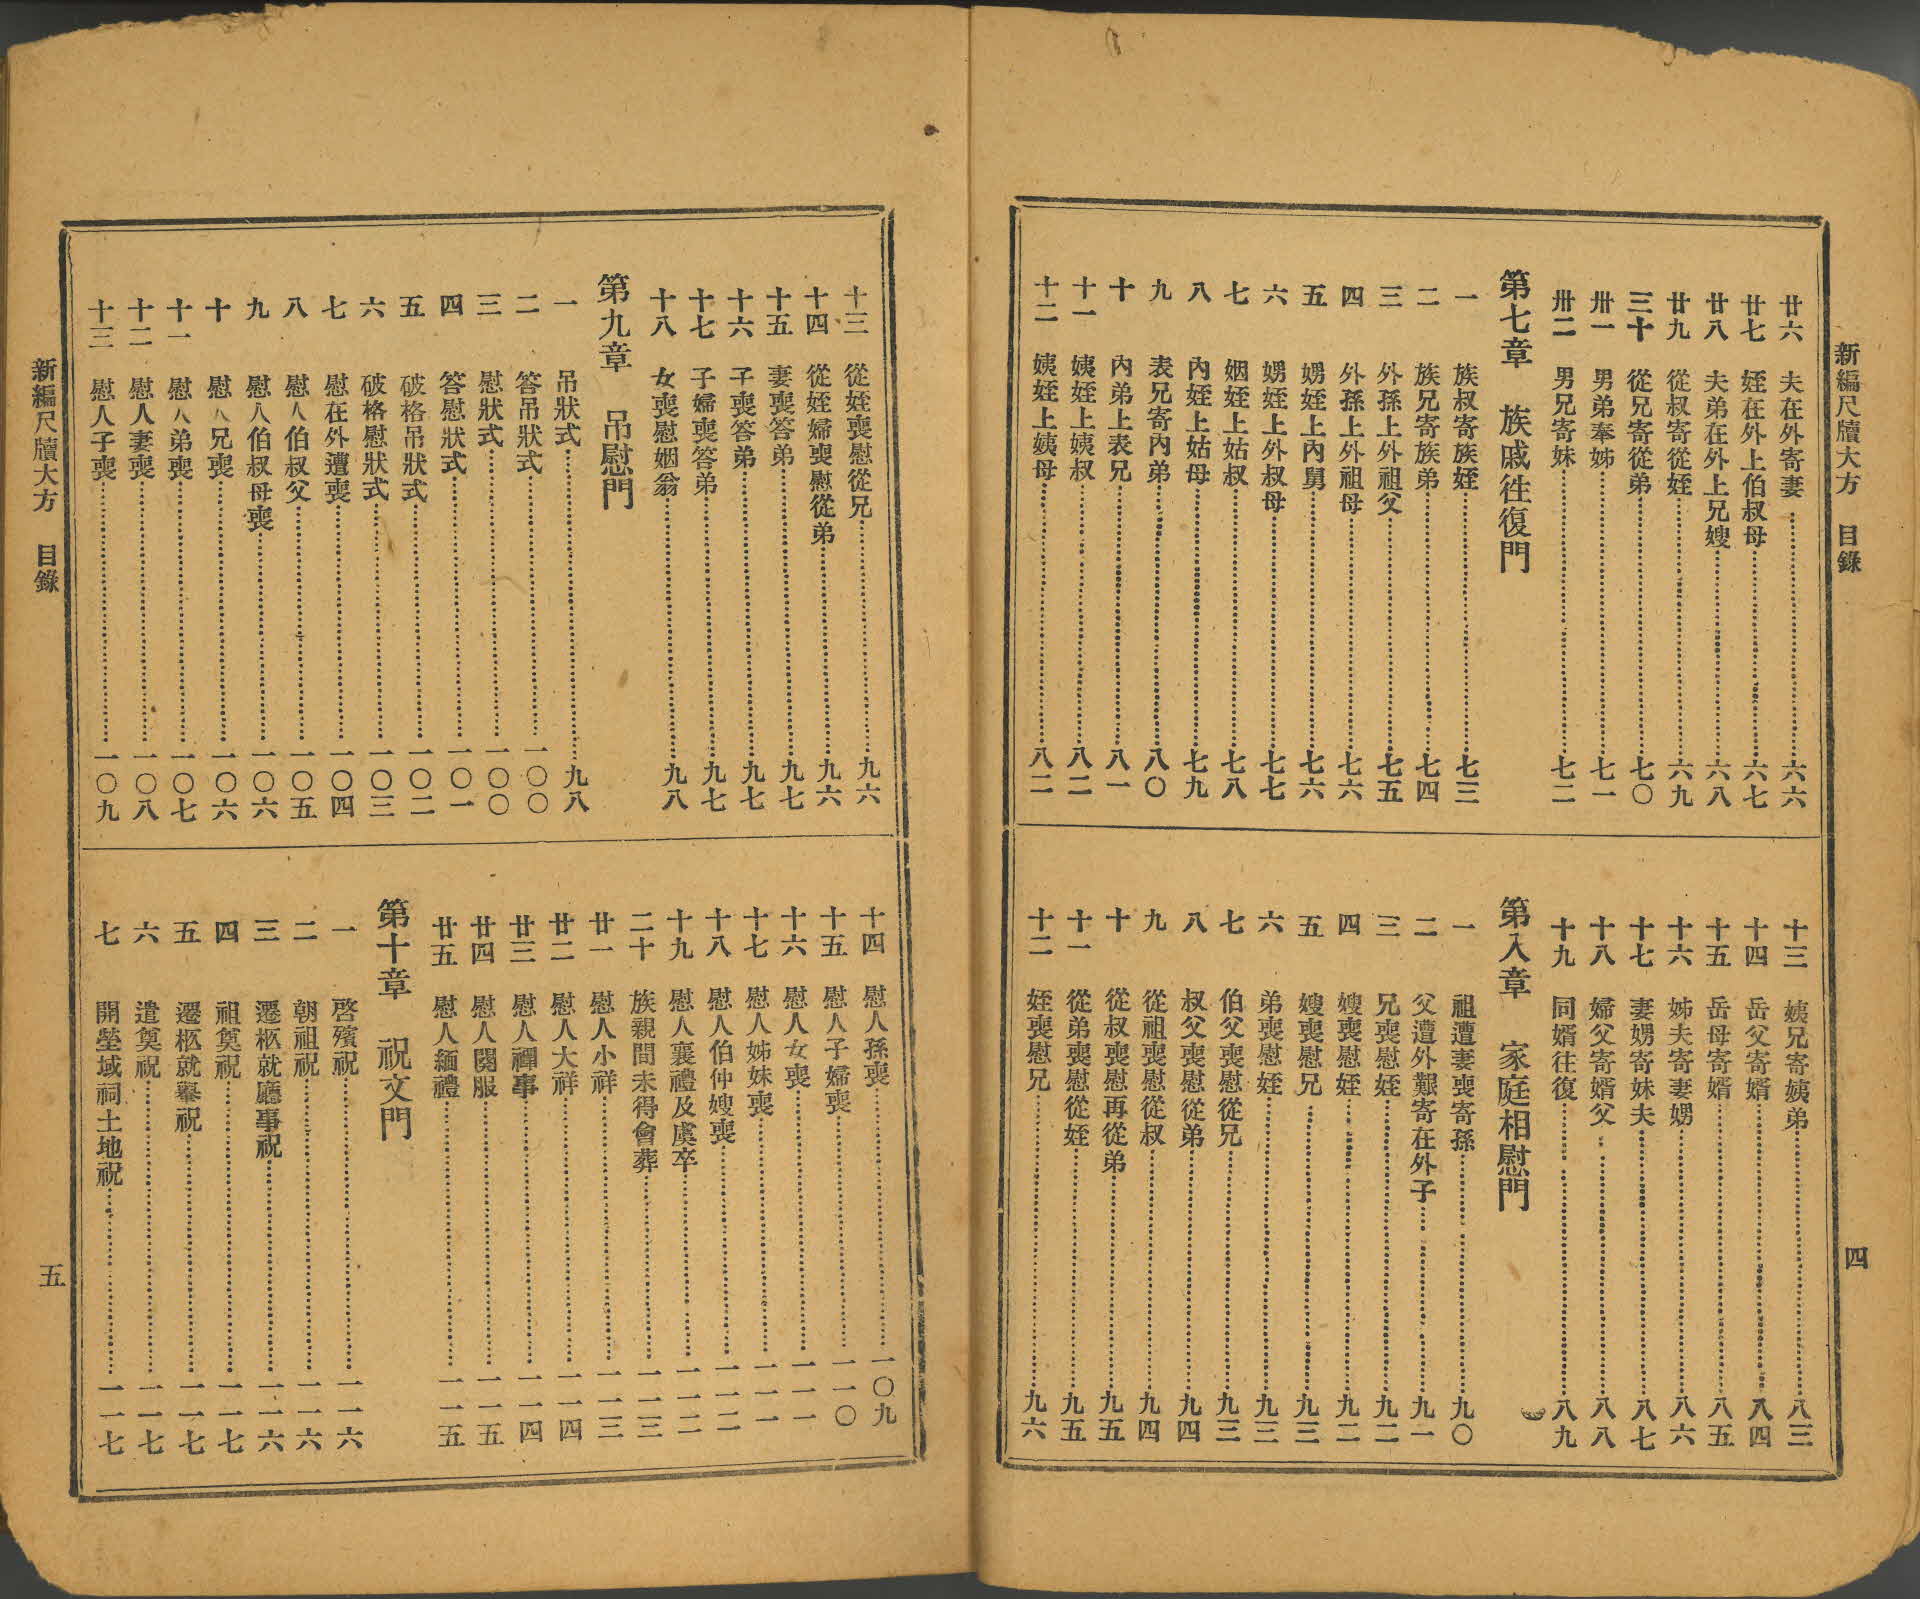 新編尺牘大方 目錄 四
廿六 夫在外寄妻 六六
廿七 姪在外上伯叔母 六七
廿八 夫弟在外上兄嫂 六八
廿九 從叔寄從姪 六九
三十 從兄寄從弟 七〇
卅一 男弟奉姊 七一
卅二 男兄寄妹 七二
第七章 族戚徃復門
一 族叔寄族姪 七三
二 族兄寄族弟 七四
三 外孫上外祖父 七五
四 外孫上外祖母 七六
五 甥姪上內舅 七六
六 甥姪上外叔母 七七
七 姻姪上姑叔 七八
八 內姪上姑母 七九
九 表兄寄內弟 八〇
十 內弟上表兄 八一
十一 姨姪上姨叔 八二
十二 姨姪上姨母 八二
十三 姨兄寄姨弟 八三
十四 岳父寄婿 八四
十五 岳母寄婿 八五
十六 姊夫寄妻甥 八六
十七 妻甥寄妹夫 八七
十八 婦父寄婿父 八八
十九 同婿往復 八九
第入章 家庭相慰門
一 祖遭妻喪寄孫 九〇
二 父遭外艱寄在外子 九一
三 兄喪慰姪 九二
四 嫂喪慰姪 九二
五 嫂喪慰兄 九三
六 弟喪慰姪 九三
七 伯父喪慰從兄 九三
八 叔父喪慰從弟 九四
九 從祖喪慰從叔 九四
十 從叔喪慰再從弟 九五
十一 從弟喪慰從姪 九五
十二 姪喪慰兄 九六
十三 從姪喪慰從兄 九六
十四 從姪婦喪慰從弟 九六
十五 妻喪答弟 九七
十六 子喪答弟 九七
十七 子婦喪答弟 九七
十八 女喪慰姻翁 九八
第九章 吊慰門
一 吊狀式 九八
二 答吊狀式 一〇〇
三 慰狀式 一〇〇
四 答慰狀式 一〇一
五 破格吊狀式 一〇二
六 破格慰狀式 一〇三
七 慰在外遭喪 一〇四
八 慰人伯叔父 一〇五
九 慰人伯叔母喪 一〇六
十 慰人兄喪 一〇六
十一 慰人弟喪 一〇七
十二 慰人妻喪 一〇八
十三 慰人子喪 一〇九
十四 慰人孫喪 一〇九
十五 慰人子婦喪 一一〇
十六 慰人女喪 一一一
十七 慰人姊妹喪 一一一
十八 慰人伯仲嫂喪 一一二
十九 慰人襄禮及虞卒 一一二
二十 族親間未得會葬 一一三
廿一 慰人小祥 一一三
廿二 慰人大祥 一一四
廿三 慰人禫事 一一四
廿四 慰人闋服 一一五
廿五 慰人緬禮 一一五
第十章 祝文門
一 啓殯祝 一一六
二 朝祖祝 一一六
三 遷柩就廳事祝 一一六
四 祖奠祝 一一七
五 遷柩就轝祝 一一七
六 遣奠祝 一一七
七 開塋域祠土地祝 一一七
新編尺牘大方 目錄 五